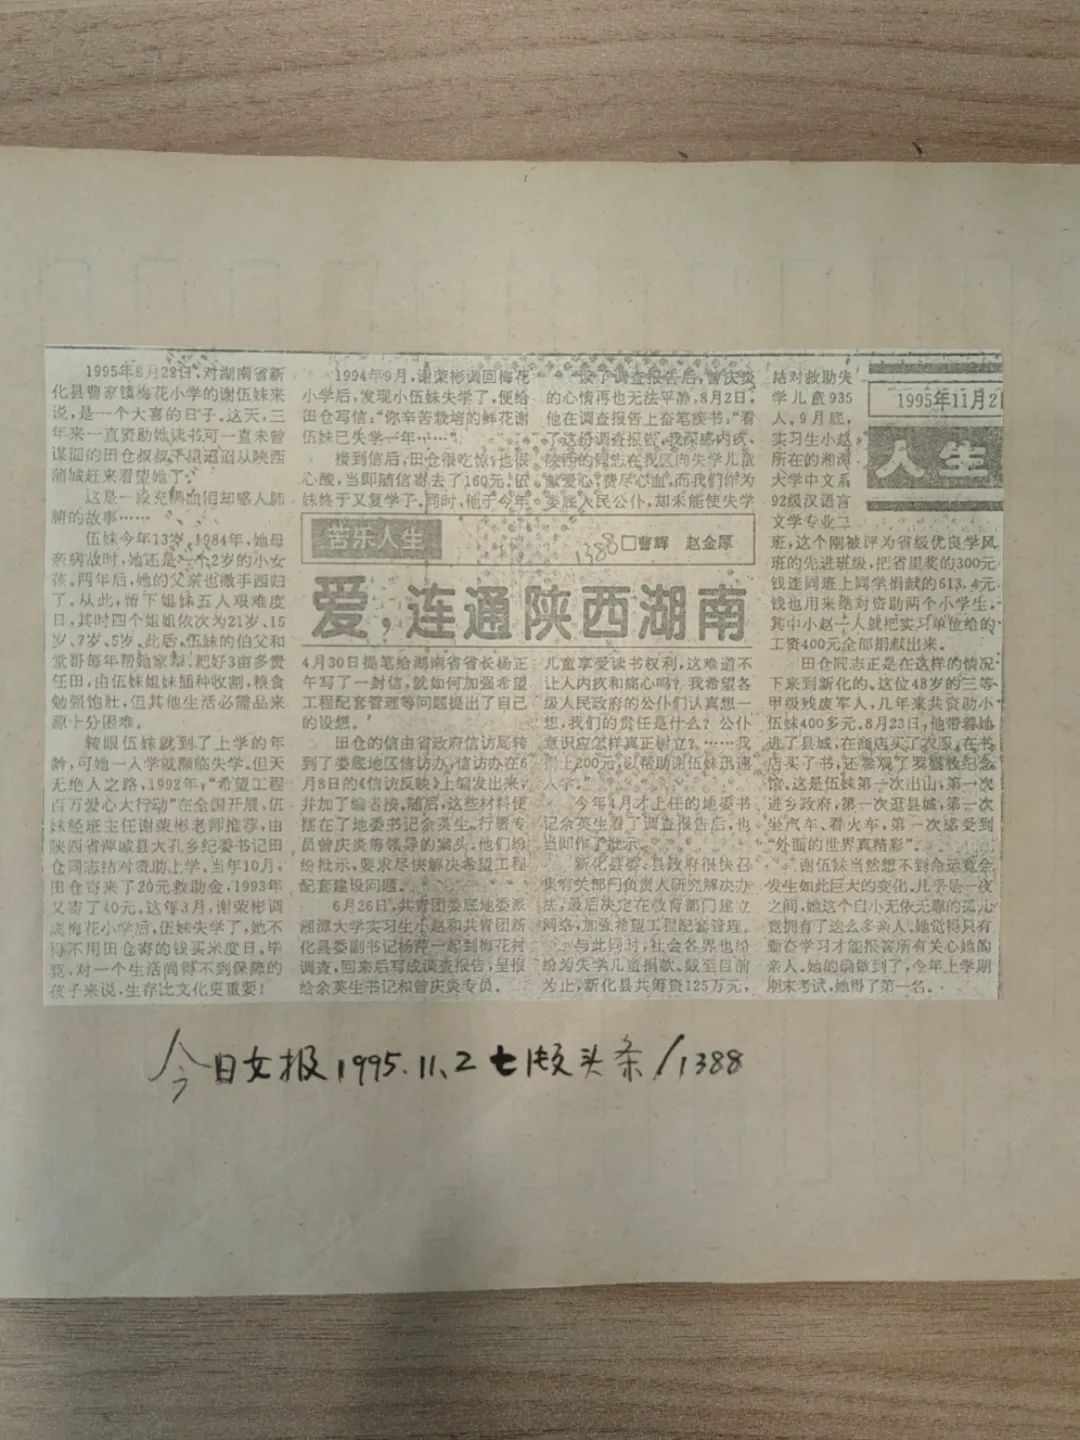 1995年8月22日,对湖南省新
化县曹家镇梅花小学的谢伍妹来
说,是一个大喜的日子。这天,三
年来一直资助她读书可一直未曾
谋面的田仓叔叔千里迢迢从陕西
蒲城赶来看望她了。
这是一段充满血泪却感人肺
腑的故事……
伍妹今年13岁。1984年,她母
亲病故时,她还是一个2岁的小女
孩。两年后,她的父亲也撒手西归
了。从此,留下姐妹五人艰难度
日,其时四个姐姐依次为21岁、15
岁、7岁、5岁。此后,伍妹的伯父和
堂哥每年帮她家犁、耙好3亩多责
任田,由伍妹姐妹插种收割,粮食
勉强饱肚,但其他生活必需品来
源十分困难。
转眼伍妹就到了上学的年
龄,可她一入学就濒临失学。但天
无绝人之路,1992年,“希望工程
百万爱心大行动”在全国开展,伍
妹经班主任谢荣彬老师推荐,由
陕西省蒲城县大孔乡纪委书记田
仓同志结对资助上学。当年10月,
田仓寄来了20元救助金,1993年
又寄了40元。这年3月,谢荣彬调
离梅花小学后,伍妹失学了,她不
得不用田仓寄的钱买米度日。毕
竟,对一个生活尚得不到保障的
孩子来说,生存比文化更重要!
1994年9月,谢荣彬调回梅花
小学后,发现小伍妹失学了,便给
田仓写信:“你辛苦栽培的鲜花谢
伍妹已失学一年……”
接到信后,田仓很吃惊,也很
心酸,当即随信寄去了160元,伍
妹终于又复学了。同时,他于今年
苦乐人生
1388 □曹辉 赵金厚
爱,连通陕西湖南
4月30日提笔给湖南省省长杨正
午写了一封信,就如何加强希望
工程配套管理等问题提出了自己
的设想。
田仓的信由省政府信访局转
到了娄底地区信访办,信访办在6
月8日的《信访反映》上编发出来,
并加了编者按。随后,这些材料便
摆在了地委书记余英生、行署专
员曾庆炎等领导的案头。他们纷
纷批示,要求尽快解决希望工程
配套建设问题。
6月26日,共青团娄底地委派
湘潭大学实习生小赵和共青团新
化县委副书记杨萍一起到梅花村
调查,回来后写成调查报告,呈报
给余英生书记和曾庆炎专员。
读了调查报告后,曾庆炎
的心情再也无法平静,8月2日,
他在调查报告上奋笔疾书:“看
了这份调查报告,我深感内疚,
陕西的同志在我区向失学儿童
献爱心,费尽心血,而我们作为
娄底人民公仆,却未能使失学
儿童享受读书权利,这难道不
让人内疚和痛心吗?我希望各
级人民政府的公仆们认真想一
想,我们的责任是什么?公仆
意识应怎样真正树立?……我
寄上200元,以帮助谢伍妹迅速
入学。”
今年4月才上任的地委书
记余英生看了调查报告后,也
当即作了批示。
新化县委、县政府很快召
集有关部门负责人研究解决办
法,最后决定在教育部门建立
网络,加强希望工程配套管理。
与此同时,社会各界也纷
纷为失学儿童捐款。截至目前
为止,新化县共筹资125万元,
结对救助失
学儿童935
人。9月底,
实习生小赵
所在的湘潭
大学中文系
92级汉语言
文学专业二
班,这个刚被评为省级优良学风
班的先进班级,把省里奖的300元
钱连同班上同学捐献的613.4元
钱也用来结对资助两个小学生,
其中小赵一人就把实习单位给的
工资400元全部捐献出来。
田仓同志正是在这样的情况
下来到新化的。这位48岁的三等
甲级残废军人,几年来共资助小
伍妹400多元。8月23日,他带着她
进了县城,在商店买了衣服,在书
店买了书,还参观了罗盛教纪念
馆,这是伍妹第一次出山,第一次
进乡政府,第一次逛县城,第一次
坐汽车、看火车,第一次感受到
“外面的世界真精彩”。
谢伍妹当然想不到命运竟会
发生如此巨大的变化,几乎是一夜
之间,她这个自小无依无靠的孤儿
竟拥有了这么多亲人,她觉得只有
勤奋学习才能报答所有关心她的
亲人。她的确做到了,今年上学期
期末考试,她得了第一名。
1995年11月2
人生
今日女报1995.11.2 七版头条/1388